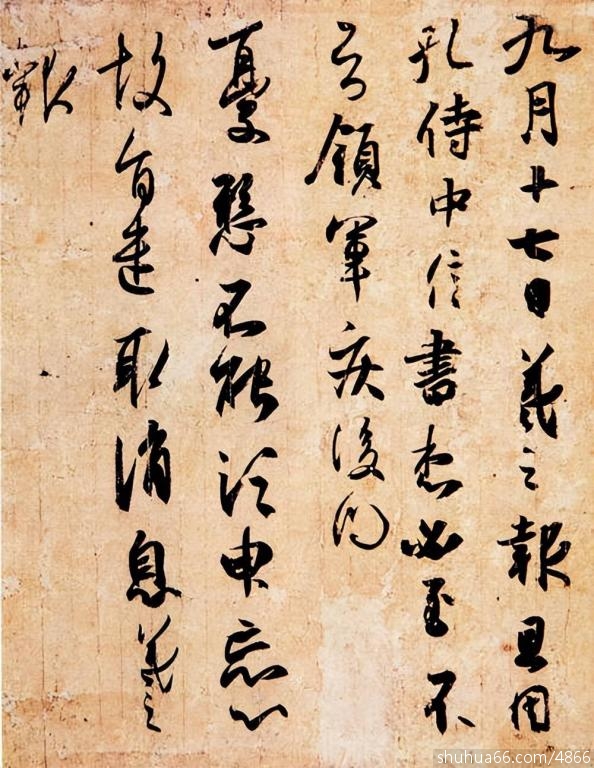 九月十七日羲之報且因
孔侍中信書想必至不
知領軍疾後問
憂懸不能須臾忘心
故旨遣取消息羲之
報
shuhua66.com/4866